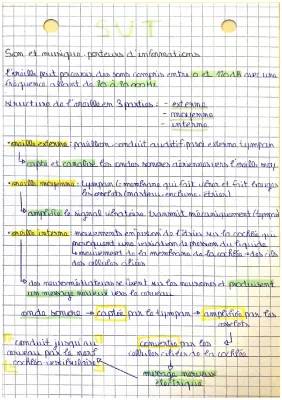 SVT
Son et musique, porteurs d'informations
L'oreille peut percevoir des sons compris entre 0 et 120 dB avec une
fréquence allant de 20 à 20 000 Hz
Structure de l'oreille en 3 parties : - externe
- moyenne
- interne
• oreille externe : pavillon, conduit auditif paroi externe tympan
↳ capte et canalise les ondes sonores aériennes vers l'oreille moy.
• oreille moyenne : tympan (membrane qui fait vibrer et fait bouger
les osselets (marteau, enclume, étrier)
↳ amplifie le signal vibratoire transmit mécaniquement (tympan)
• oreille interne : mouvements en piston de l'étrier sur la cochlée qui
provoquent une variation de pression du liquide
↳ mouvement de la membrane de la cochlée → des cils
des cellules ciliées
↳ des neuromédiateurs sur les neurones et produisent
un message nerveux vers le cerveau
onde sonore → captée par le tympan → amplifiée par les
osselets
conduit jusqu'au
cerveau par le nerf
cochléo vestibulaire
convertie par les
cellules ciliées de la cochlée
message nerveux
électrique